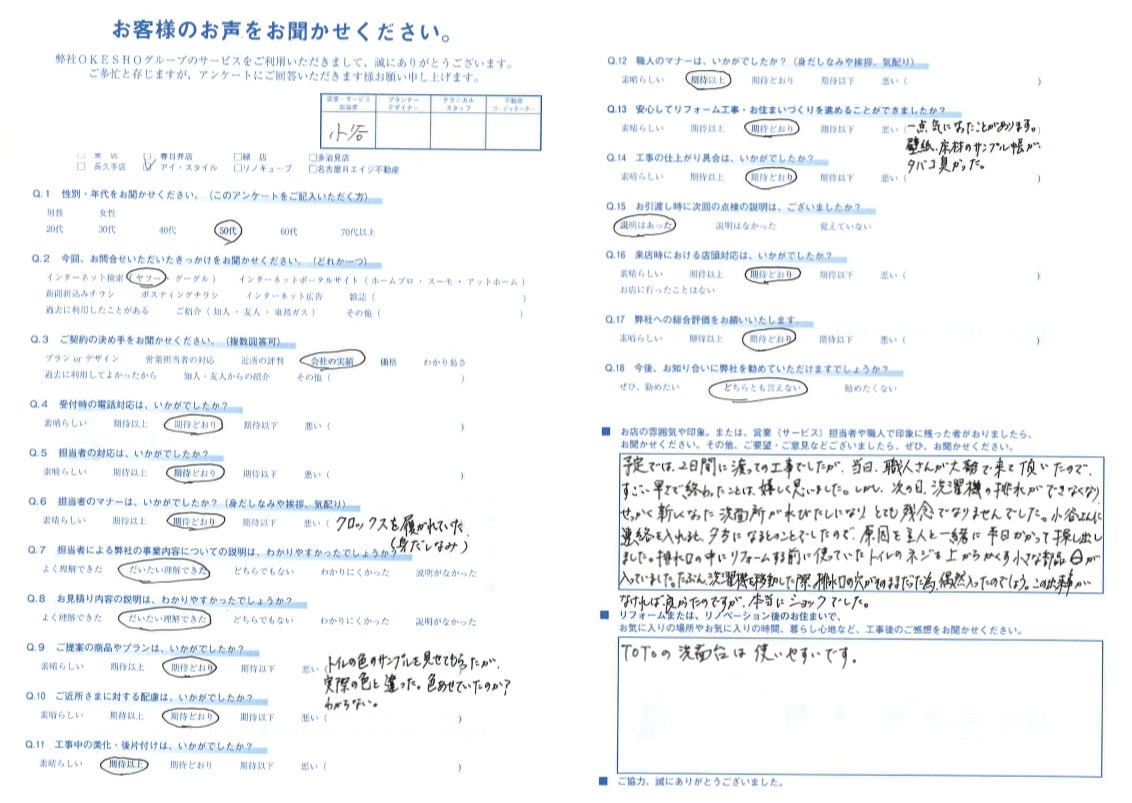 お客様のお声をお聞かせください。
弊社OKESHOグループのサービスをご利用いただきまして、誠にありがとうございます。
ご多忙と存じますが、アンケートにご回答いただきます様お願い申し上げます。
営業・サービス担当者 プランナーデザイナー テクニカルスタッフ 不動産コーディネーター
小谷
□ 東 店 □ 春日井店 □緑 店 □多治見店
□ 長久手店 ☑ アイ・スタイル □リノキューブ □名古屋Rエイジ不動産
Q.1 性別・年代をお聞かせください。(このアンケートをご記入いただく方)
男性 女性
20代 30代 40代 50代 60代 70代以上
Q.2 今回、お問合せいただいたきっかけをお聞かせください。(どれか一つ)
インターネット検索(ヤフー・グーグル) インターネットポータルサイト(ホームプロ・スーモ・アットホーム)
新聞折込みチラシ ポスティングチラシ インターネット広告 雑誌( )
過去に利用したことがある ご紹介(知人・友人・東邦ガス) その他( )
Q.3 ご契約の決め手をお聞かせください。(複数回答可)
プラン or デザイン 営業担当者の対応 近所の評判 会社の実績 価格 わかり易さ
過去に利用してよかったから 知人・友人からの紹介 その他( )
Q.4 受付時の電話対応は、いかがでしたか?
素晴らしい 期待以上 期待どおり 期待以下 悪い( )
Q.5 担当者の対応は、いかがでしたか?
素晴らしい 期待以上 期待どおり 期待以下 悪い( )
Q.6 担当者のマナーは、いかがでしたか?(身だしなみや挨拶、気配り)
素晴らしい 期待以上 期待どおり 期待以下 悪い(クロックスを履かれていた
(身だしなみ)
Q.7 担当者による弊社の事業内容についての説明は、わかりやすかったでしょうか?
よく理解できた だいたい理解できた どちらでもない わかりにくかった 説明がなかった
Q.8 お見積り内容の説明は、わかりやすかったでしょうか?
よく理解できた だいたい理解できた どちらでもない わかりにくかった 説明がなかった
Q.9 ご提案の商品やプランは、いかがでしたか?
素晴らしい 期待以上 期待どおり 期待以下 悪い(トイレの色のサンプルを見せてもらったが、
実際の色と違った。色あせていたのか?
わからない。
Q.10 ご近所さまに対する配慮は、いかがでしたか?
素晴らしい 期待以上 期待どおり 期待以下 悪い( )
Q.11 工事中の美化・後片付けは、いかがでしたか?
素晴らしい 期待以上 期待どおり 期待以下 悪い( )
Q.12 職人のマナーは、いかがでしたか?(身だしなみや挨拶、気配り)
素晴らしい 期待以上 期待どおり 期待以下 悪い( )
Q.13 安心してリフォーム工事・お住まいづくりを進めることができましたか?
素晴らしい 期待以上 期待どおり 期待以下 悪い(一点気になったことがあります。
壁紙、床材のサンプル帳が、
タバコ臭かった。
Q.14 工事の仕上がり具合は、いかがでしたか?
素晴らしい 期待以上 期待どおり 期待以下 悪い( )
Q.15 お引渡し時に次回の点検の説明は、ございましたか?
説明はあった 説明はなかった 覚えていない
Q.16 来店時における店頭対応は、いかがでしたか?
素晴らしい 期待以上 期待どおり 期待以下 悪い( )
お店に行ったことはない
Q.17 弊社への総合評価をお願いいたします。
素晴らしい 期待以上 期待どおり 期待以下 悪い( )
Q.18 今後、お知り合いに弊社を勧めていただけますでしょうか?
ぜひ、勧めたい どちらとも言えない 勧めたくない
■ お店の雰囲気や印象。または、営業(サービス)担当者や職人で印象に残った者がおりましたら、
お聞かせください。その他、ご要望・ご意見などございましたら、ぜひ、お聞かせください。
予定では、2日間に渡っての工事でしたが、当日、職人さんが大勢で来て頂いたので、
すごい早さで終わったことは嬉しく思いました。しかし、次の日、洗濯機の排水ができなくなり
せっかく新しくなった洗面所が水びたしになり とても残念でなりませんでした。小谷さんに
連絡を入れると、夕方になるとのことでしたので、原因を主人と一緒に半日かかって探し出し
ました。排水口の中にリフォームする前に使っていたトイレのネジを上からかくす小さな部品が
入っていました。たぶん、洗濯機を移動した際、排水口の穴がそのままだった為、偶然入ったのでしょう。この出来事が
なければ良かったのですが、本当にショックでした。
■ リフォームまたは、リノベーション後のお住まいで、
お気に入りの場所やお気に入りの時間、暮らし心地など、工事後のご感想をお聞かせください。
TOTOの洗面台は使いやすいです。
■ ご協力、誠にありがとうございました。